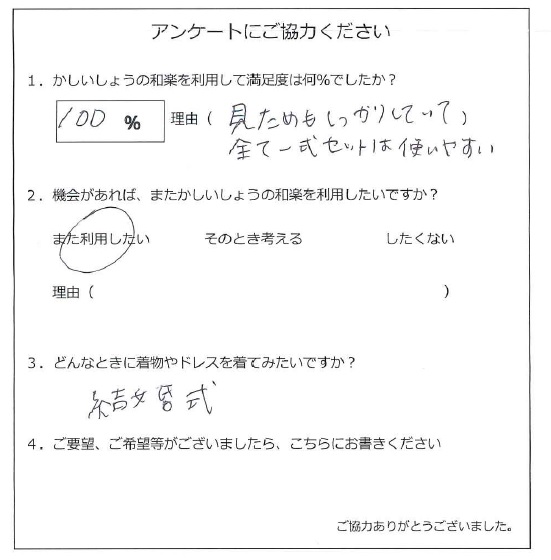 アンケートにご協力ください
1．かしいしょうの和楽を利用して満足度は何%でしたか？
100 % 理由（ 見ためもしっかりしていて）
全て一式セットは使いやすい
2．機会があれば、またかしいしょうの和楽を利用したいですか？
また利用したい そのとき考える したくない
理由（ ）
3．どんなときに着物やドレスを着てみたいですか？
結婚式
4．ご要望、ご希望等がございましたら、こちらにお書きください
ご協力ありがとうございました。